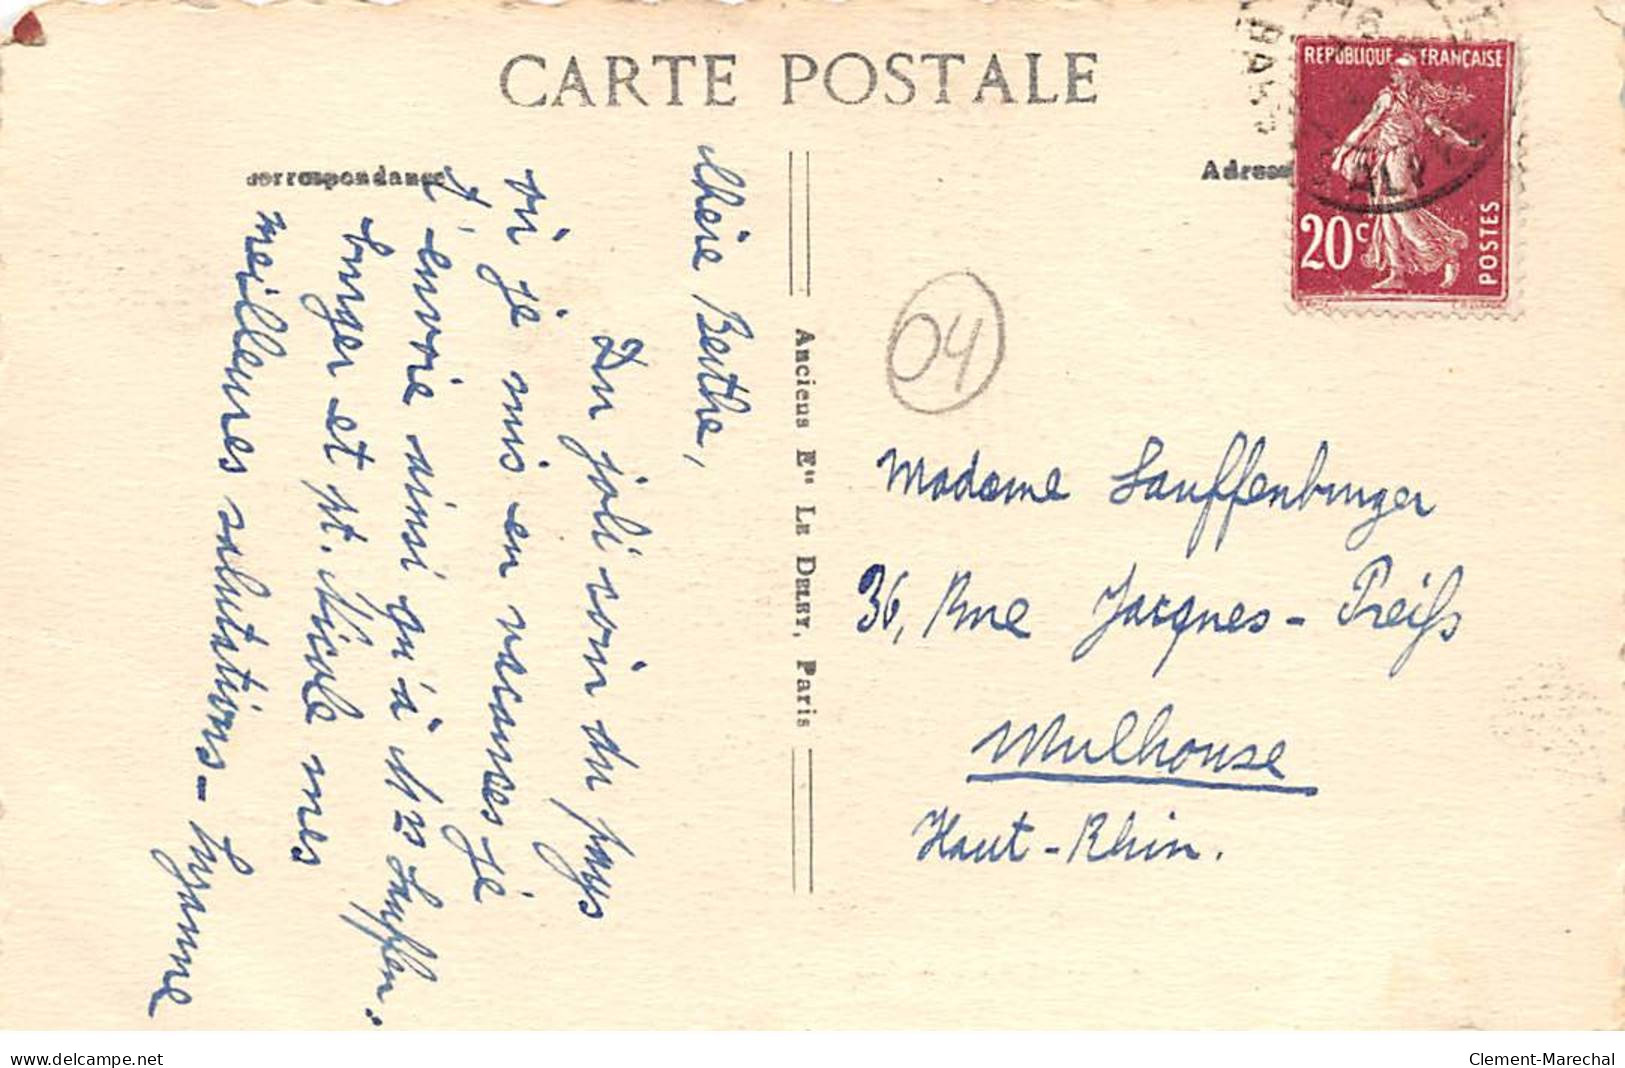 CARTE POSTALE
Correspondance
Adresse
REPUBLIQUE FRANÇAISE
20c
POSTES
04
Chère Berthe,
Du joli coin du pays
où je suis en vacances je
t'envoie ainsi qu'à Mr Lauffen-
burger et pt. Nicole mes
meilleures salutations - Suzanne
Anciens Ets LE DELEY, Paris
Madame Lauffenburger
36, Rue Jacques-Preiss
Mulhouse
Haut-Rhin.
www.delcampe.net
Clement-Marechal